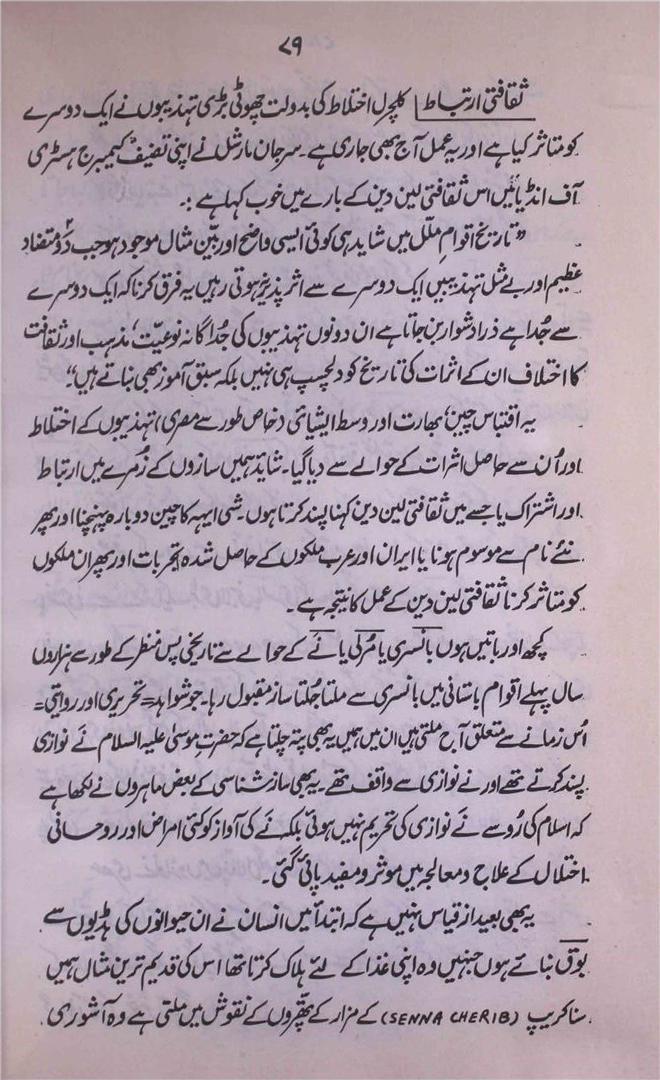 ۷۹
ثقافتی ارتباط | کلچرل اختلاط کی بدولت چھوٹی بڑی تہذیبوں نے ایک دوسرے
کو متاثر کیا ہے اور یہ عمل آج بھی جاری ہے۔ سرجان مارشل نے اپنی تصنیف "کیمبرج ہسٹری
آف انڈیا" میں اس ثقافتی لین دین کے بارے میں خوب کہا ہے :۔
"تاریخ اقوامِ ملل میں شاید ہی کوئی ایسی واضح اور بیّن مثال موجود ہو جب دو متضاد
عظیم اور بے مثل تہذیبیں ایک دوسرے سے اثر پذیر ہوتی رہیں یہ فرق کرنا کہ ایک دوسرے
سے جُدا ہے ذرا دشوار بن جاتا ہے ان دونوں تہذیبوں کی جُداگانہ نوعیّت، مذہب اور ثقافت
کا اختلاف ان کے اثرات کی تاریخ کو دلچسپ ہی نہیں بلکہ سبق آموز بھی بناتے ہیں"
یہ اقتباس چین، بھارت اور وسط ایشیائی (خاص طور سے مصری) تہذیبوں کے اختلاط
اور اُن سے حاصل اثرات کے حوالے سے دیا گیا۔ شاید ہمیں سازوں کے زُمرے میں ارتباط
اور اشتراک یا جسے میں ثقافتی لین دین کہنا پسند کرتا ہوں۔ شی ایہہ کا چین دوبارہ پہنچنا اور پھر
نئے نام سے موسوم ہونا یا ایران اور عرب ملکوں کے حاصل شدہ تجربات اور پھر ان ملکوں
کو متاثر کرنا ثقافتی لین دین کے عمل کا نتیجہ ہے۔
کچھ اور باتیں ہوں بانسری یا مُرلی یا نَے کے حوالے سے تاریخی پس منظر کے طور سے ہزاروں
سال پہلے اقوام باستانی میں بانسری سے ملتا جُلتا ساز مقبول رہا۔ جو شواہد = تحریری اور روایتی =
اُس زمانے سے متعلق آج ملتی ہیں ان میں ہمیں یہ بھی پتہ چلتا ہے کہ حضرتِ موسیٰ علیہ السلام نَے نوازی
پسند کرتے تھے اور نے نوازی سے واقف تھے۔ یہ بھی ساز شناسی کے بعض ماہروں نے لکھا ہے
کہ اسلام کی رُو سے نَے نوازی کی تحریم نہیں ہوئی بلکہ نَے کی آواز کو کئی امراض اور روحانی
اختلال کے علاج و معالجہ میں موثر و مفید پائی گئی۔
یہ بھی بعید از قیاس نہیں ہے کہ ابتدأ میں انسان نے ان حیوانوں کی ہڈیوں سے
بوق بنائے ہوں جنہیں وہ اپنی غذا کے لئے ہلاک کرتا تھا اس کی قدیم ترین مثال ہمیں
سناکریپ (SENNA CHERIB) کے مزار کے پتّھروں کے نقوش میں ملتی ہے وہ آشوری